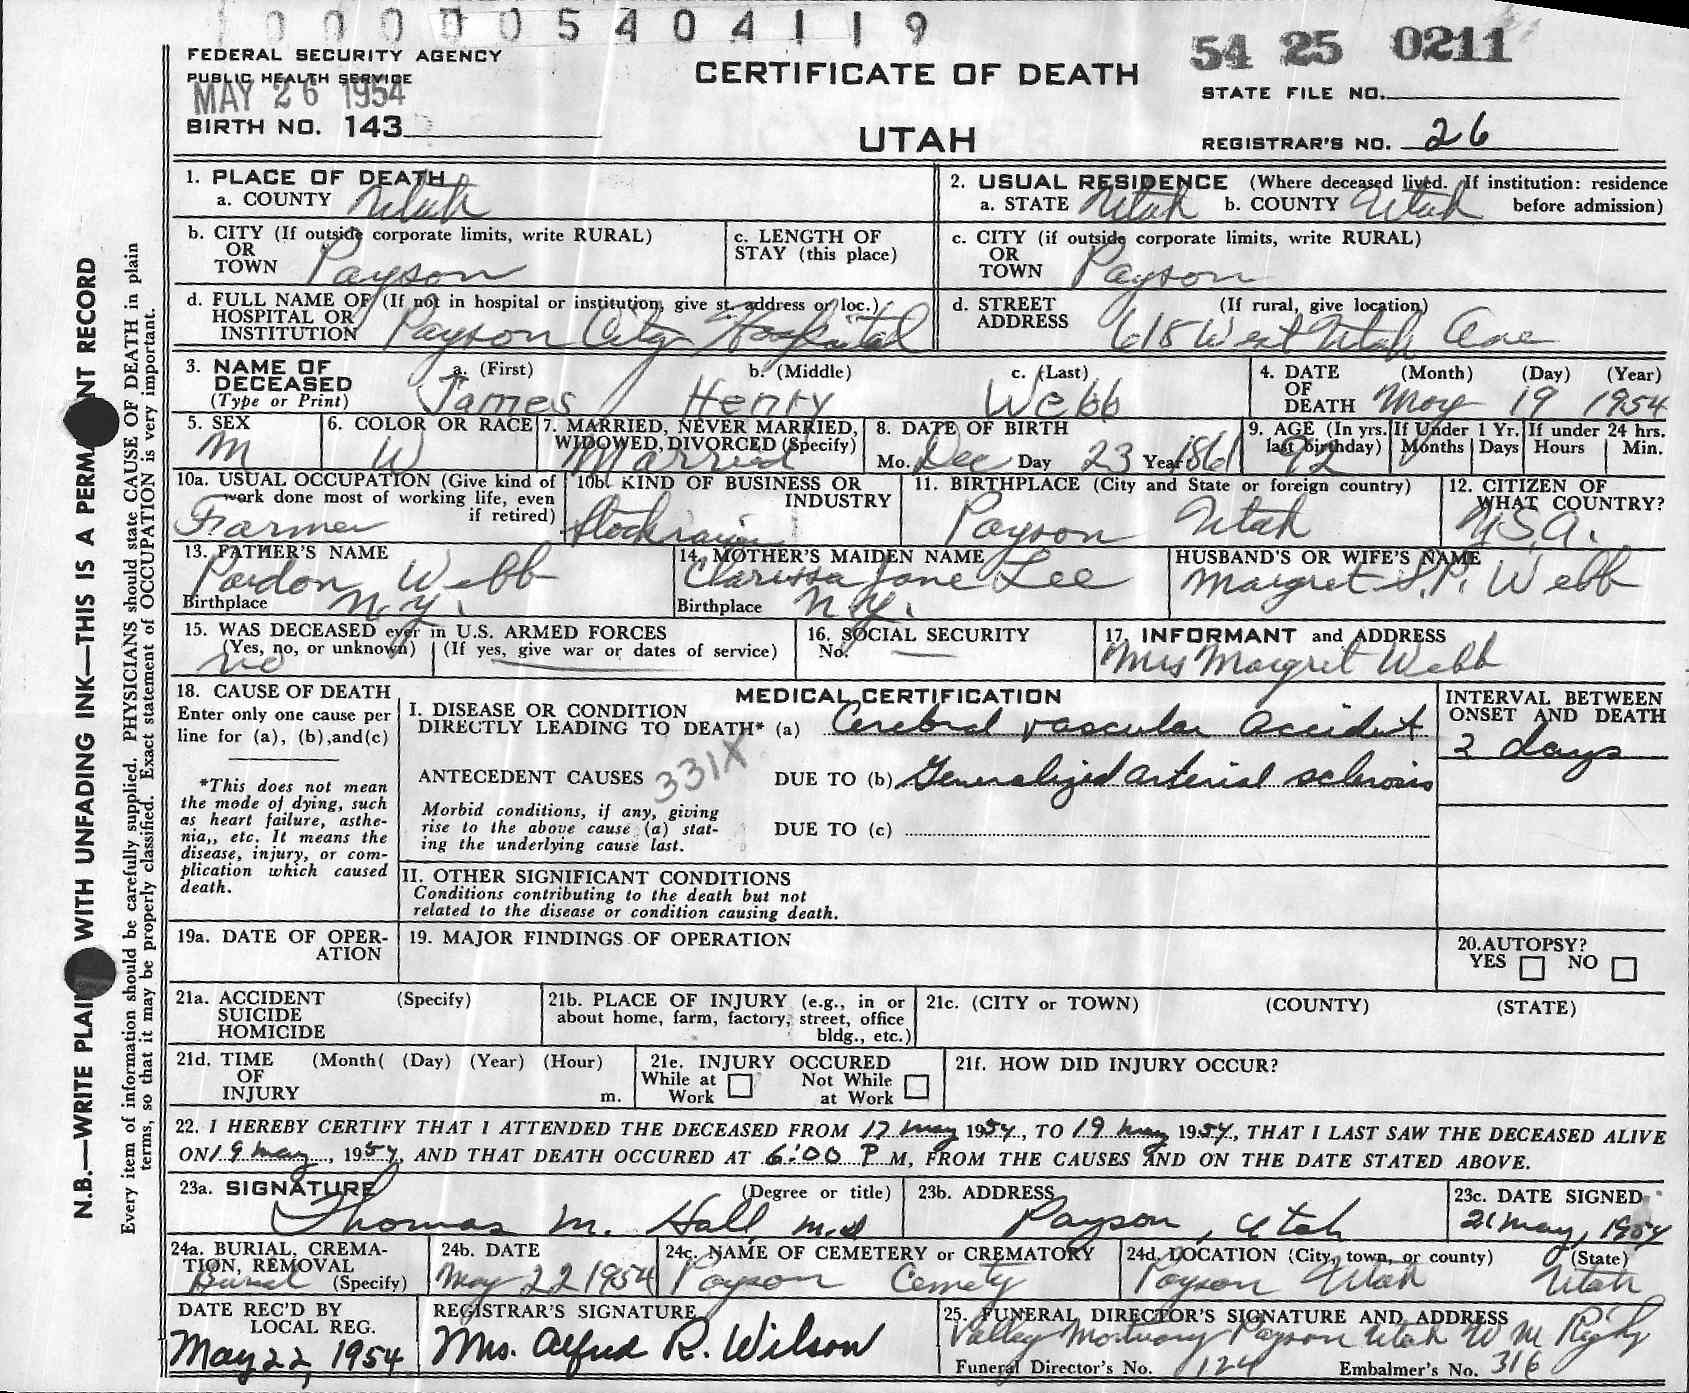 0000054041 1 9
FEDERAL SECURITY AGENCY
PUBLIC HEALTH SERVICE
MAY 26 1954
BIRTH NO. 143
CERTIFICATE OF DEATH
UTAH
54 25 0211
STATE FILE NO.
REGISTRAR'S NO. 26
N.B.—WRITE PLAI WITH UNFADING INK—THIS IS A PERM NT RECORD
Every item of information should be carefully supplied. PHYSICIANS should state CAUSE OF DEATH in plain
terms, so that it may be properly classified. Exact statement of OCCUPATION is very important.
1. PLACE OF DEATH
a. COUNTY Utah
2. USUAL RESIDENCE (Where deceased lived. If institution: residence
a. STATE Utah b. COUNTY Utah before admission)
b. CITY (If outside corporate limits, write RURAL)
OR
TOWN Payson
c. LENGTH OF
STAY (this place)
c. CITY (if outside corporate limits, write RURAL)
OR
TOWN Payson
d. FULL NAME OF (If not in hospital or institution, give st. address or loc.)
HOSPITAL OR
INSTITUTION Payson City Hospital
d. STREET (If rural, give location)
ADDRESS 615 West Utah Ave
3. NAME OF a. (First) b. (Middle) c. (Last)
DECEASED
(Type or Print) James Henry Webb
4. DATE (Month) (Day) (Year)
OF
DEATH May 19 1954
5. SEX
M
6. COLOR OR RACE
W
7. MARRIED, NEVER MARRIED,
WIDOWED, DIVORCED (Specify)
Married
8. DATE OF BIRTH
Mo. Dec Day 23 Year 1861
9. AGE (In yrs. If Under 1 Yr. If under 24 hrs.
last birthday) Months Days Hours Min.
92
10a. USUAL OCCUPATION (Give kind of
work done most of working life, even
if retired)
Farmer
10b. KIND OF BUSINESS OR
INDUSTRY
Stockraising
11. BIRTHPLACE (City and State or foreign country)
Payson Utah
12. CITIZEN OF
WHAT COUNTRY?
U.S.A.
13. FATHER'S NAME
Pardon Webb
Birthplace N.Y.
14. MOTHER'S MAIDEN NAME
Clarissa Jane Lee
Birthplace N.Y.
HUSBAND'S OR WIFE'S NAME
Margret S.P. Webb
15. WAS DECEASED ever in U.S. ARMED FORCES
(Yes, no, or unknown) (If yes, give war or dates of service)
no
16. SOCIAL SECURITY
No.
17. INFORMANT and ADDRESS
Mrs Margret Webb
18. CAUSE OF DEATH
Enter only one cause per
line for (a), (b),and(c)
*This does not mean
the mode of dying, such
as heart failure, asthe-
nia,, etc. It means the
disease, injury, or com-
plication which caused
death.
MEDICAL CERTIFICATION
I. DISEASE OR CONDITION
DIRECTLY LEADING TO DEATH* (a) Cerebral vascular accident
ANTECEDENT CAUSES 331X DUE TO (b) Generalized arterial sclerosis
Morbid conditions, if any, giving
rise to the above cause (a) stat-
ing the underlying cause last.
DUE TO (c)
INTERVAL BETWEEN
ONSET AND DEATH
2 days
II. OTHER SIGNIFICANT CONDITIONS
Conditions contributing to the death but not
related to the disease or condition causing death.
19a. DATE OF OPER-
ATION
19. MAJOR FINDINGS OF OPERATION
20.AUTOPSY?
YES NO
21a. ACCIDENT (Specify)
SUICIDE
HOMICIDE
21b. PLACE OF INJURY (e.g., in or
about home, farm, factory, street, office
bldg., etc.)
21c. (CITY or TOWN) (COUNTY) (STATE)
21d. TIME (Month( (Day) (Year) (Hour)
OF
INJURY m.
21e. INJURY OCCURED
While at Not While
Work at Work
21f. HOW DID INJURY OCCUR?
22. I HEREBY CERTIFY THAT I ATTENDED THE DECEASED FROM 17 May 1954, TO 19 May 1954, THAT I LAST SAW THE DECEASED ALIVE
ON 19 May, 1954, AND THAT DEATH OCCURED AT 6:00 P M, FROM THE CAUSES AND ON THE DATE STATED ABOVE.
23a. SIGNATURE (Degree or title)
Thomas M. Hall, M.D
23b. ADDRESS
Payson, Utah
23c. DATE SIGNED
21 May, 1954
24a. BURIAL, CREMA-
TION, REMOVAL
Burial (Specify)
24b. DATE
May 22 1954
24c. NAME OF CEMETERY or CREMATORY
Payson Cemety
24d. LOCATION (City, town, or county) (State)
Payson Utah Utah
DATE REC'D BY
LOCAL REG.
May 22, 1954
REGISTRAR'S SIGNATURE
Mrs. Alfred R. Wilson
25. FUNERAL DIRECTOR'S SIGNATURE AND ADDRESS
Valley Mortuary Payson Utah W M Rigby
Funeral Director's No. 124 Embalmer's No. 316